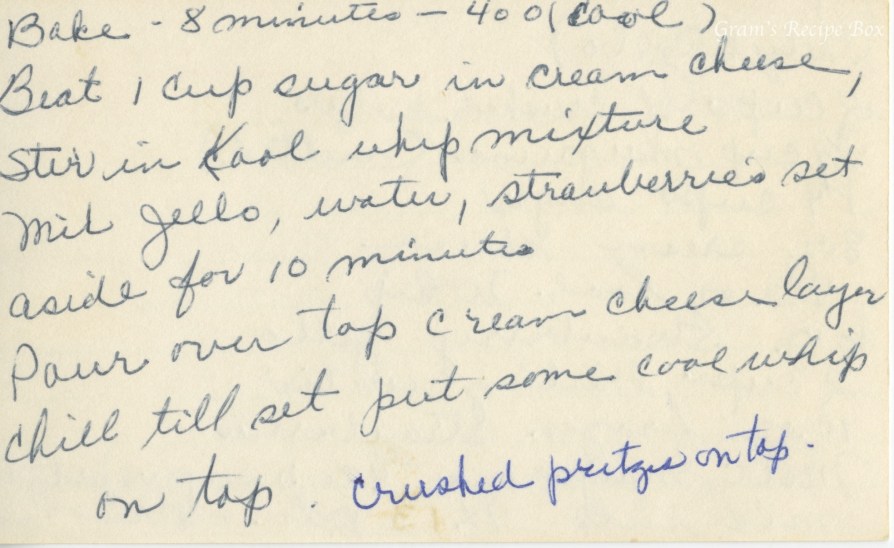 Gram's Recipe Box
Bake - 8 minutes - 400 (cool)
Beat 1 cup sugar in cream cheese,
Stir in Kool whip mixture
Mix Jello, water, strawberries set
aside for 10 minutes
Pour over top cream cheese layer
chill till set put some cool whip
on top. crushed pretzes on top.